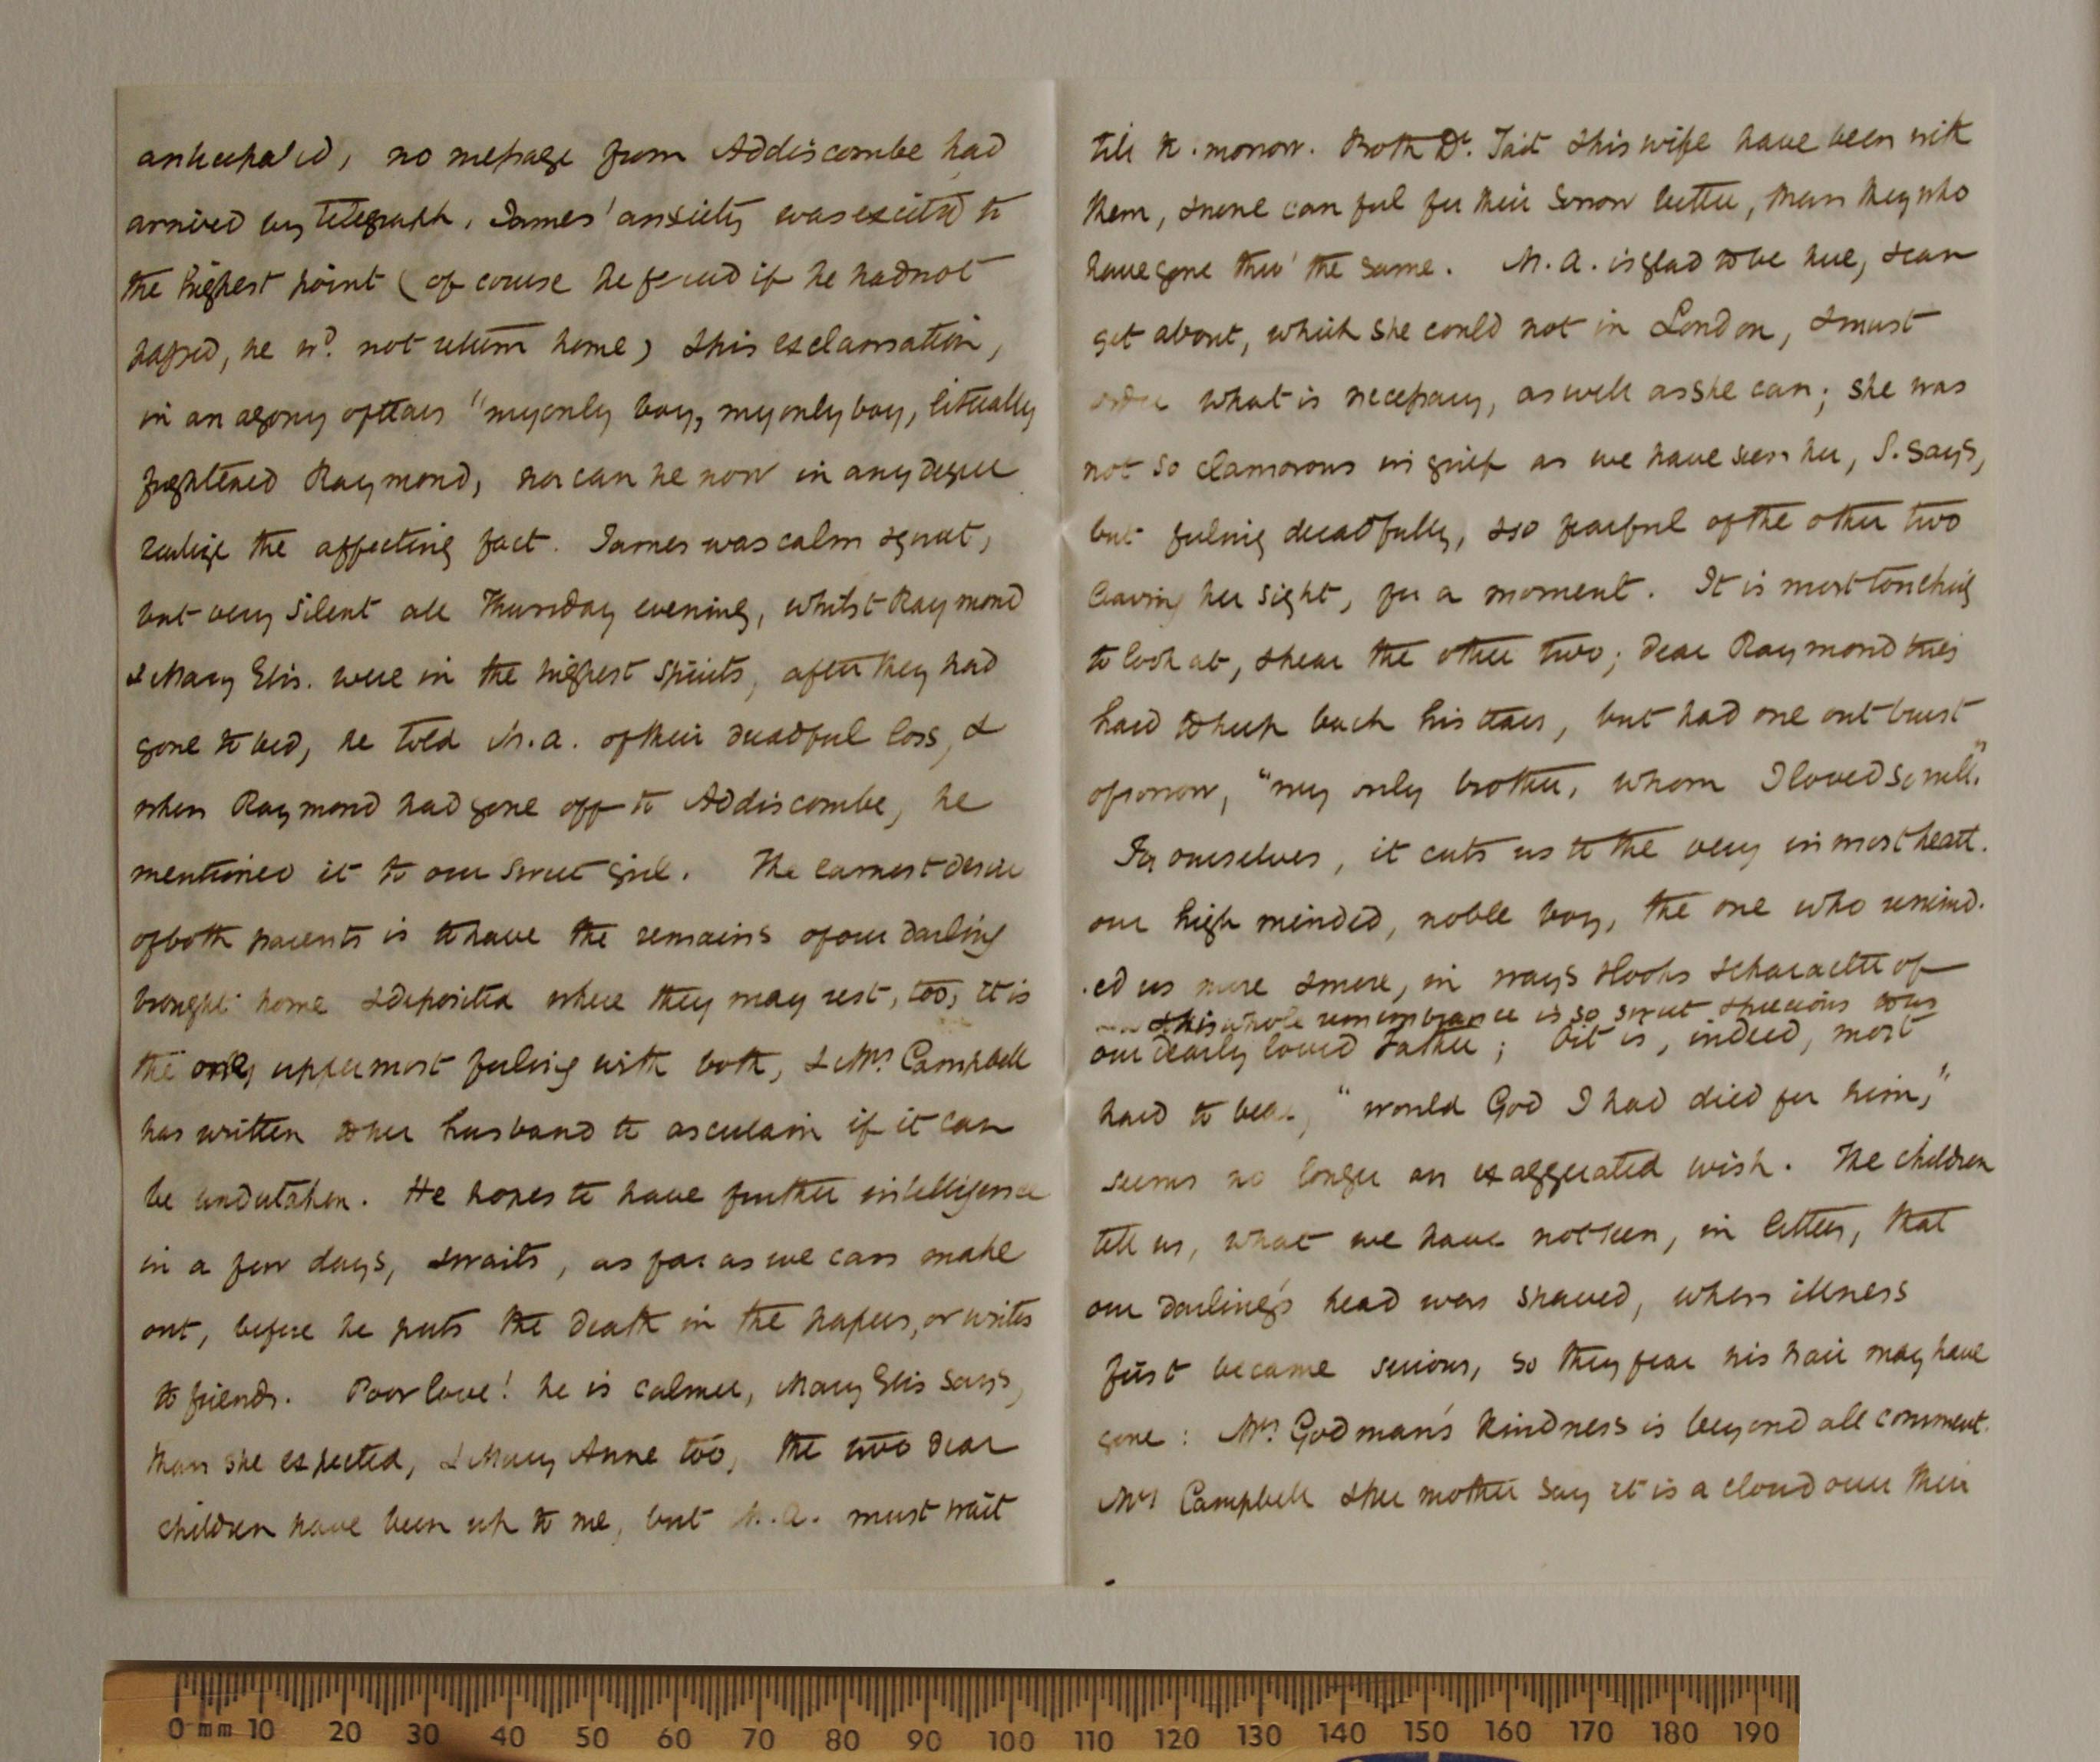 anticipated, no message from Addiscombe had
arrived by telegraph, James' anxiety was excited to
the highest point (of course he feared if he had not
passed, he wd. not return home) & his exclamation,
in an agony of tears "my only boy, my only boy, literally
frightened Raymond, nor can he now in any degree
realize the affecting fact. James was calm & quiet,
but very silent all Thursday evening, whilst Raymond
& Mary Elis. were in the highest spirits, after they had
gone to bed, he told M.A. of their dreadful loss, &
when Raymond had gone off to Addiscombe, he
mentioned it to our sweet girl. The earnest desire
of both parents is to have the remains of our darling
brought home & deposited where they may rest, too, it is
the only uppermost feeling with both, & Mrs. Campbell
has written to her husband to ascertain if it can
be undertaken. He hopes to have further intelligence
in a few days, & waits, as far as we can make
out, before he puts the death in the papers, or writes
to friends. Poor love! he is calmer, Mary Elis says,
than she expected, & Mary Anne too, the two dear
children have been up to me, but M.A. must wait
till to-morrow. Both Dr. Tait & his wife have been with
them, & none can feel for their sorrow better, than they who
have gone thro' the same. M.A. is glad to be here, & can
get about, which she could not in London, & must
order what is necessary, as well as she can; she was
not so clamorous in grief as we have seen her, S. says,
but feeling dreadfully, & so fearful of the other two
leaving her sight, for a moment. It is most touching
to look at, & hear the other two; dear Raymond tries
hard to keep back his tears, but had one outburst
of sorrow, "my only brother, whom I loved so well."
For ourselves, it cuts us to the very inmost heart.
our high minded, noble boy, the one who remind-
-ed us more & more, in ways & looks & character of
& his whole remembrance is so sweet & precious to us
our dearly loved Father; Oit is, indeed, most
hard to bear, "would God I had died for him,"
seems no longer an exaggerated wish. The children
tell us, what we have not seen, in letters, that
our darling's head was shaved, when illness
first became serious, so they fear his hair may have
gone: Mrs. Godman's kindness is beyond all comment.
Mrs Campbell & her mother say it is a cloud over their
0 mm 10 20 30 40 50 60 70 80 90 100 110 120 130 140 150 160 170 180 190